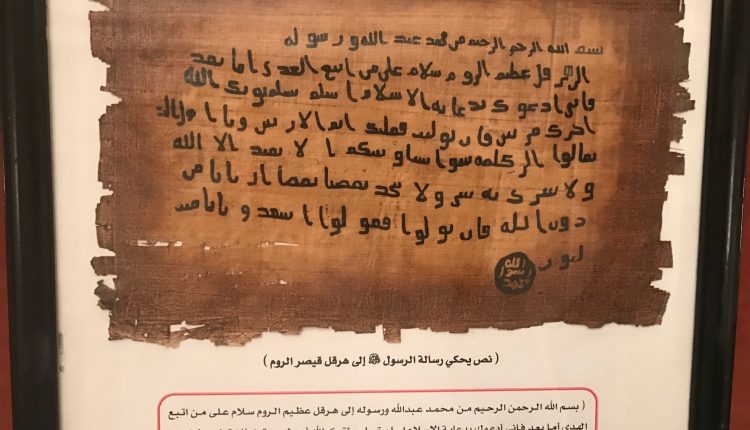 بسم الله الرحمن الرحيم من محمد عبد الله و رسوله
الى هرقل عظيم الروم سلام على من اتبع الهدى اما بعد
فانى ادعوك بدعايه الاسلام اسلم تسلم يوتك الله
اجرك مرتين فان توليت فعليك اثم
تعالوا الى كلمه سوا بيننا و بينكم ا لا نعبد الا الله
و لا نشرك به ولا يتخذ بعضنا بعضا اربابا من
دون الله فان تولوا فقولوا ا شهدو بانا
الله
رسول
محمد
( نص يحكي رسالة الرسول ﷺ إلى هرقل قيصر الروم )
( بسم الله الرحمن الرحيم من محمد عبدالله ورسوله إلى هرقل عظيم الروم سلام على من اتبع
الهدى أما بعد فإني أدعوك بدعاية الإسلام